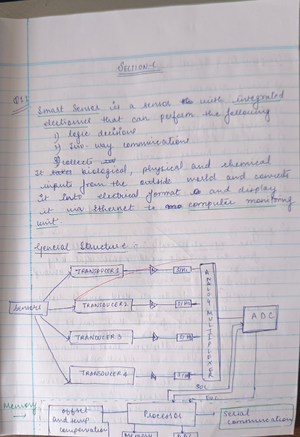 SECTION-1
Q1.)
Smart Sensor is a sensor with integrated
electronics that can perform the following
1) logic decisions
2) two-way communications
3) collects
It biological, physical and chemical
inputs from the outside world and converts
it into electrical format and display
it via Ethernet to computer monitoring
unit.
General Structure:
TRANSDUCER 1
SENSORS
TRANSDUCER 2
TRANDUCER 3
TRANSDUCER 4
S/H
S/H
ANALOG MULTIPLEXER
ADC
Memory
offset
and temp
compensation
Processor
Serial
communication
Memory